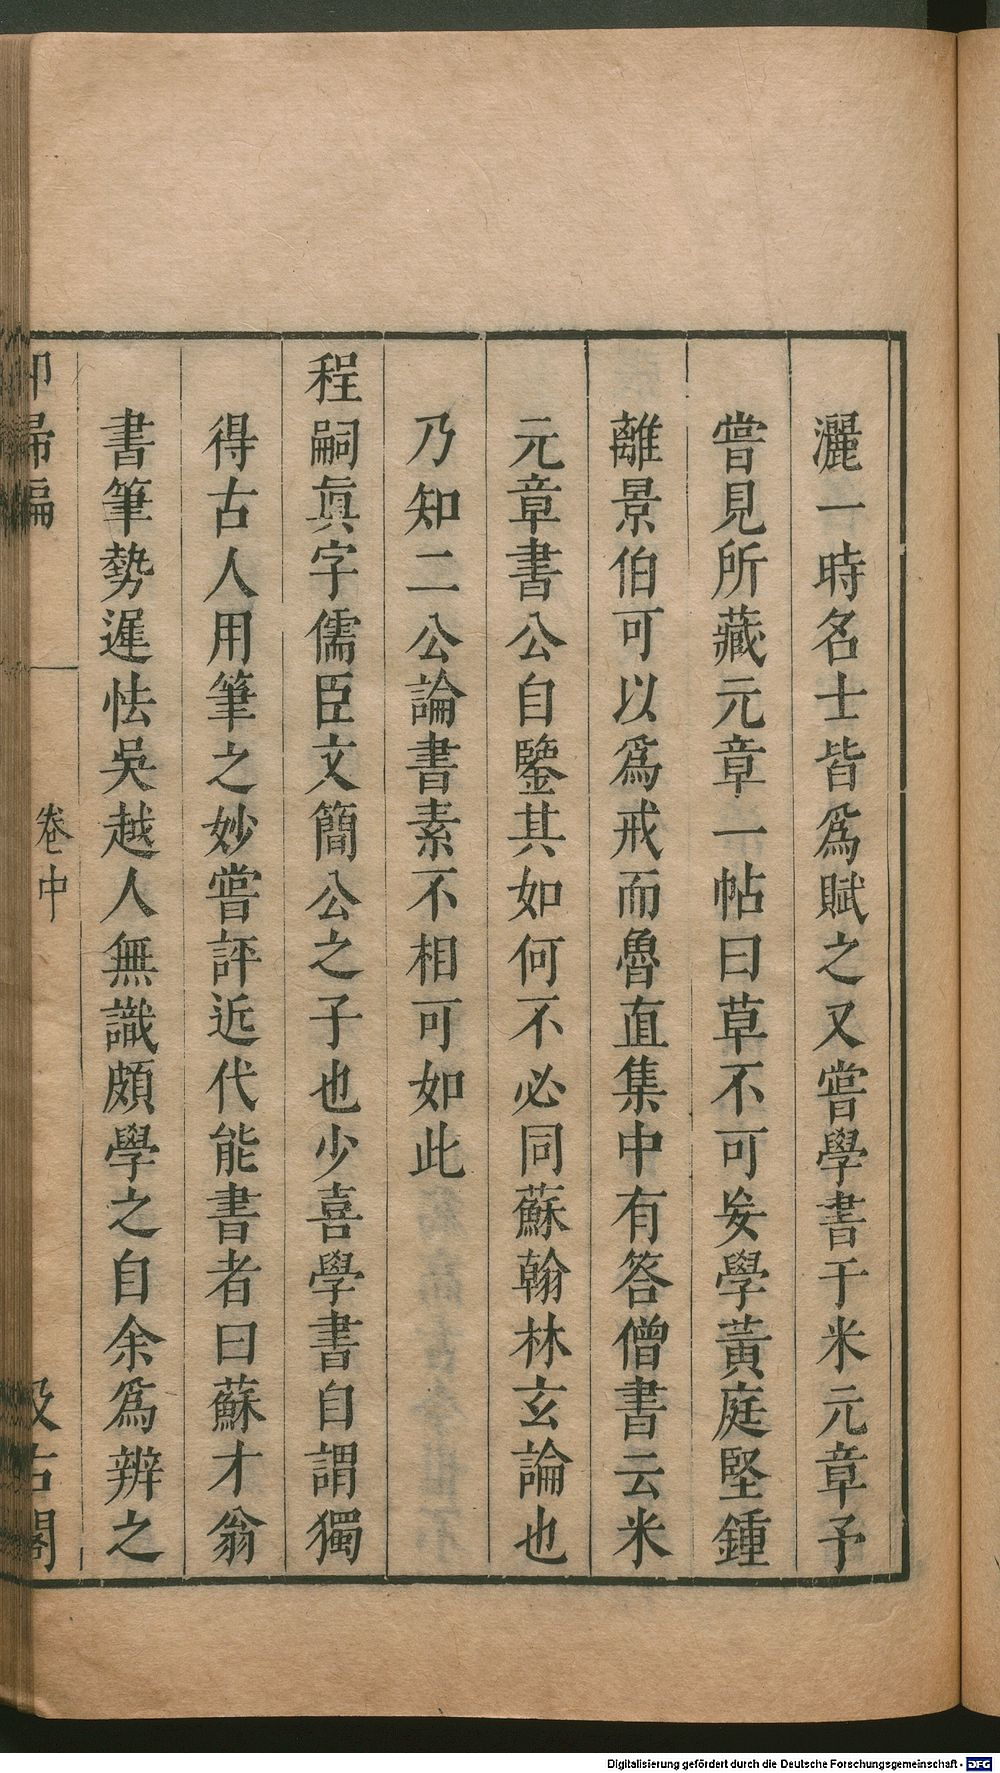 灑一時名士皆爲賦之又嘗學書于米元章予
嘗見所藏元章一帖曰草不可妄學黃庭堅鍾
離景伯可以爲戒而魯直集中有答僧書云米
元章書公自鑒其如何不必同蘇翰林玄論也
乃知二公論書素不相可如此
程嗣眞字儒臣文簡公之子也少喜學書自謂獨
得古人用筆之妙嘗評近代能書者曰蘇才翁
書筆勢遲怯吳越人無識頗學之自余爲辨之
卷中
汲古閣
Digitalisierung gefördert durch die Deutsche Forschungsgemeinschaft - DFG